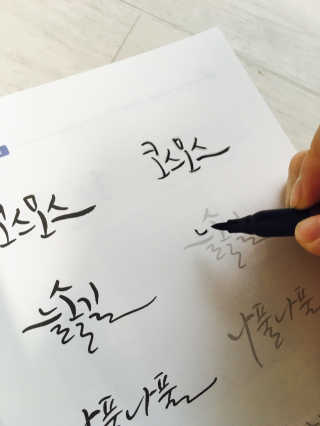 코스모스
코스모스
늘솔길
늘솔길
나풀나풀
나풀나풀